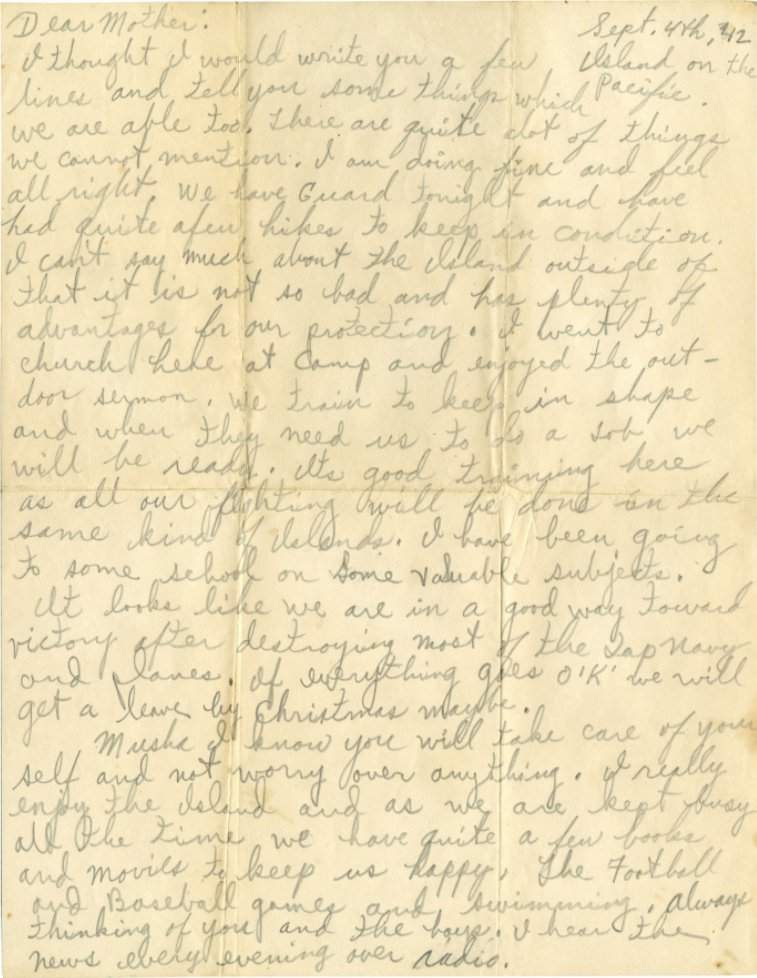 Dear Mother:
Sept. 4th, '42
Island on the
Pacific.
I thought I would write you a few
lines and tell you some things which
we are able too. There are quite alot of things
we cannot mention. I am doing fine and feel
all right. We have Guard tonight and have
had quite afew hikes to keep in condition.
I can't say much about the Island outside of
that it is not so bad and has plenty of
advantages for our protection. I went to
church here at Camp and enjoyed the out-
door sermon. We train to keep in shape
and when they need us to do a job we
will be ready. Its good training here
as all our fighting will be done in the
same kind of Islands. I have been going
to some school on some valuable subjects.
It looks like we are in a good way toward
victory after destroying most of the Jap Navy
and planes. If everything goes O'K' we will
get a leave by Christmas maybe.
Musha I know you will take care of your
self and not worry over anything. I really
enjoy the Island and as we are kept busy
all the time we have quite a few books
and movies to keep us happy. The Football
and Baseball games and swimming. Always
thinking of you and the boys. I hear the
news every evening over radio.